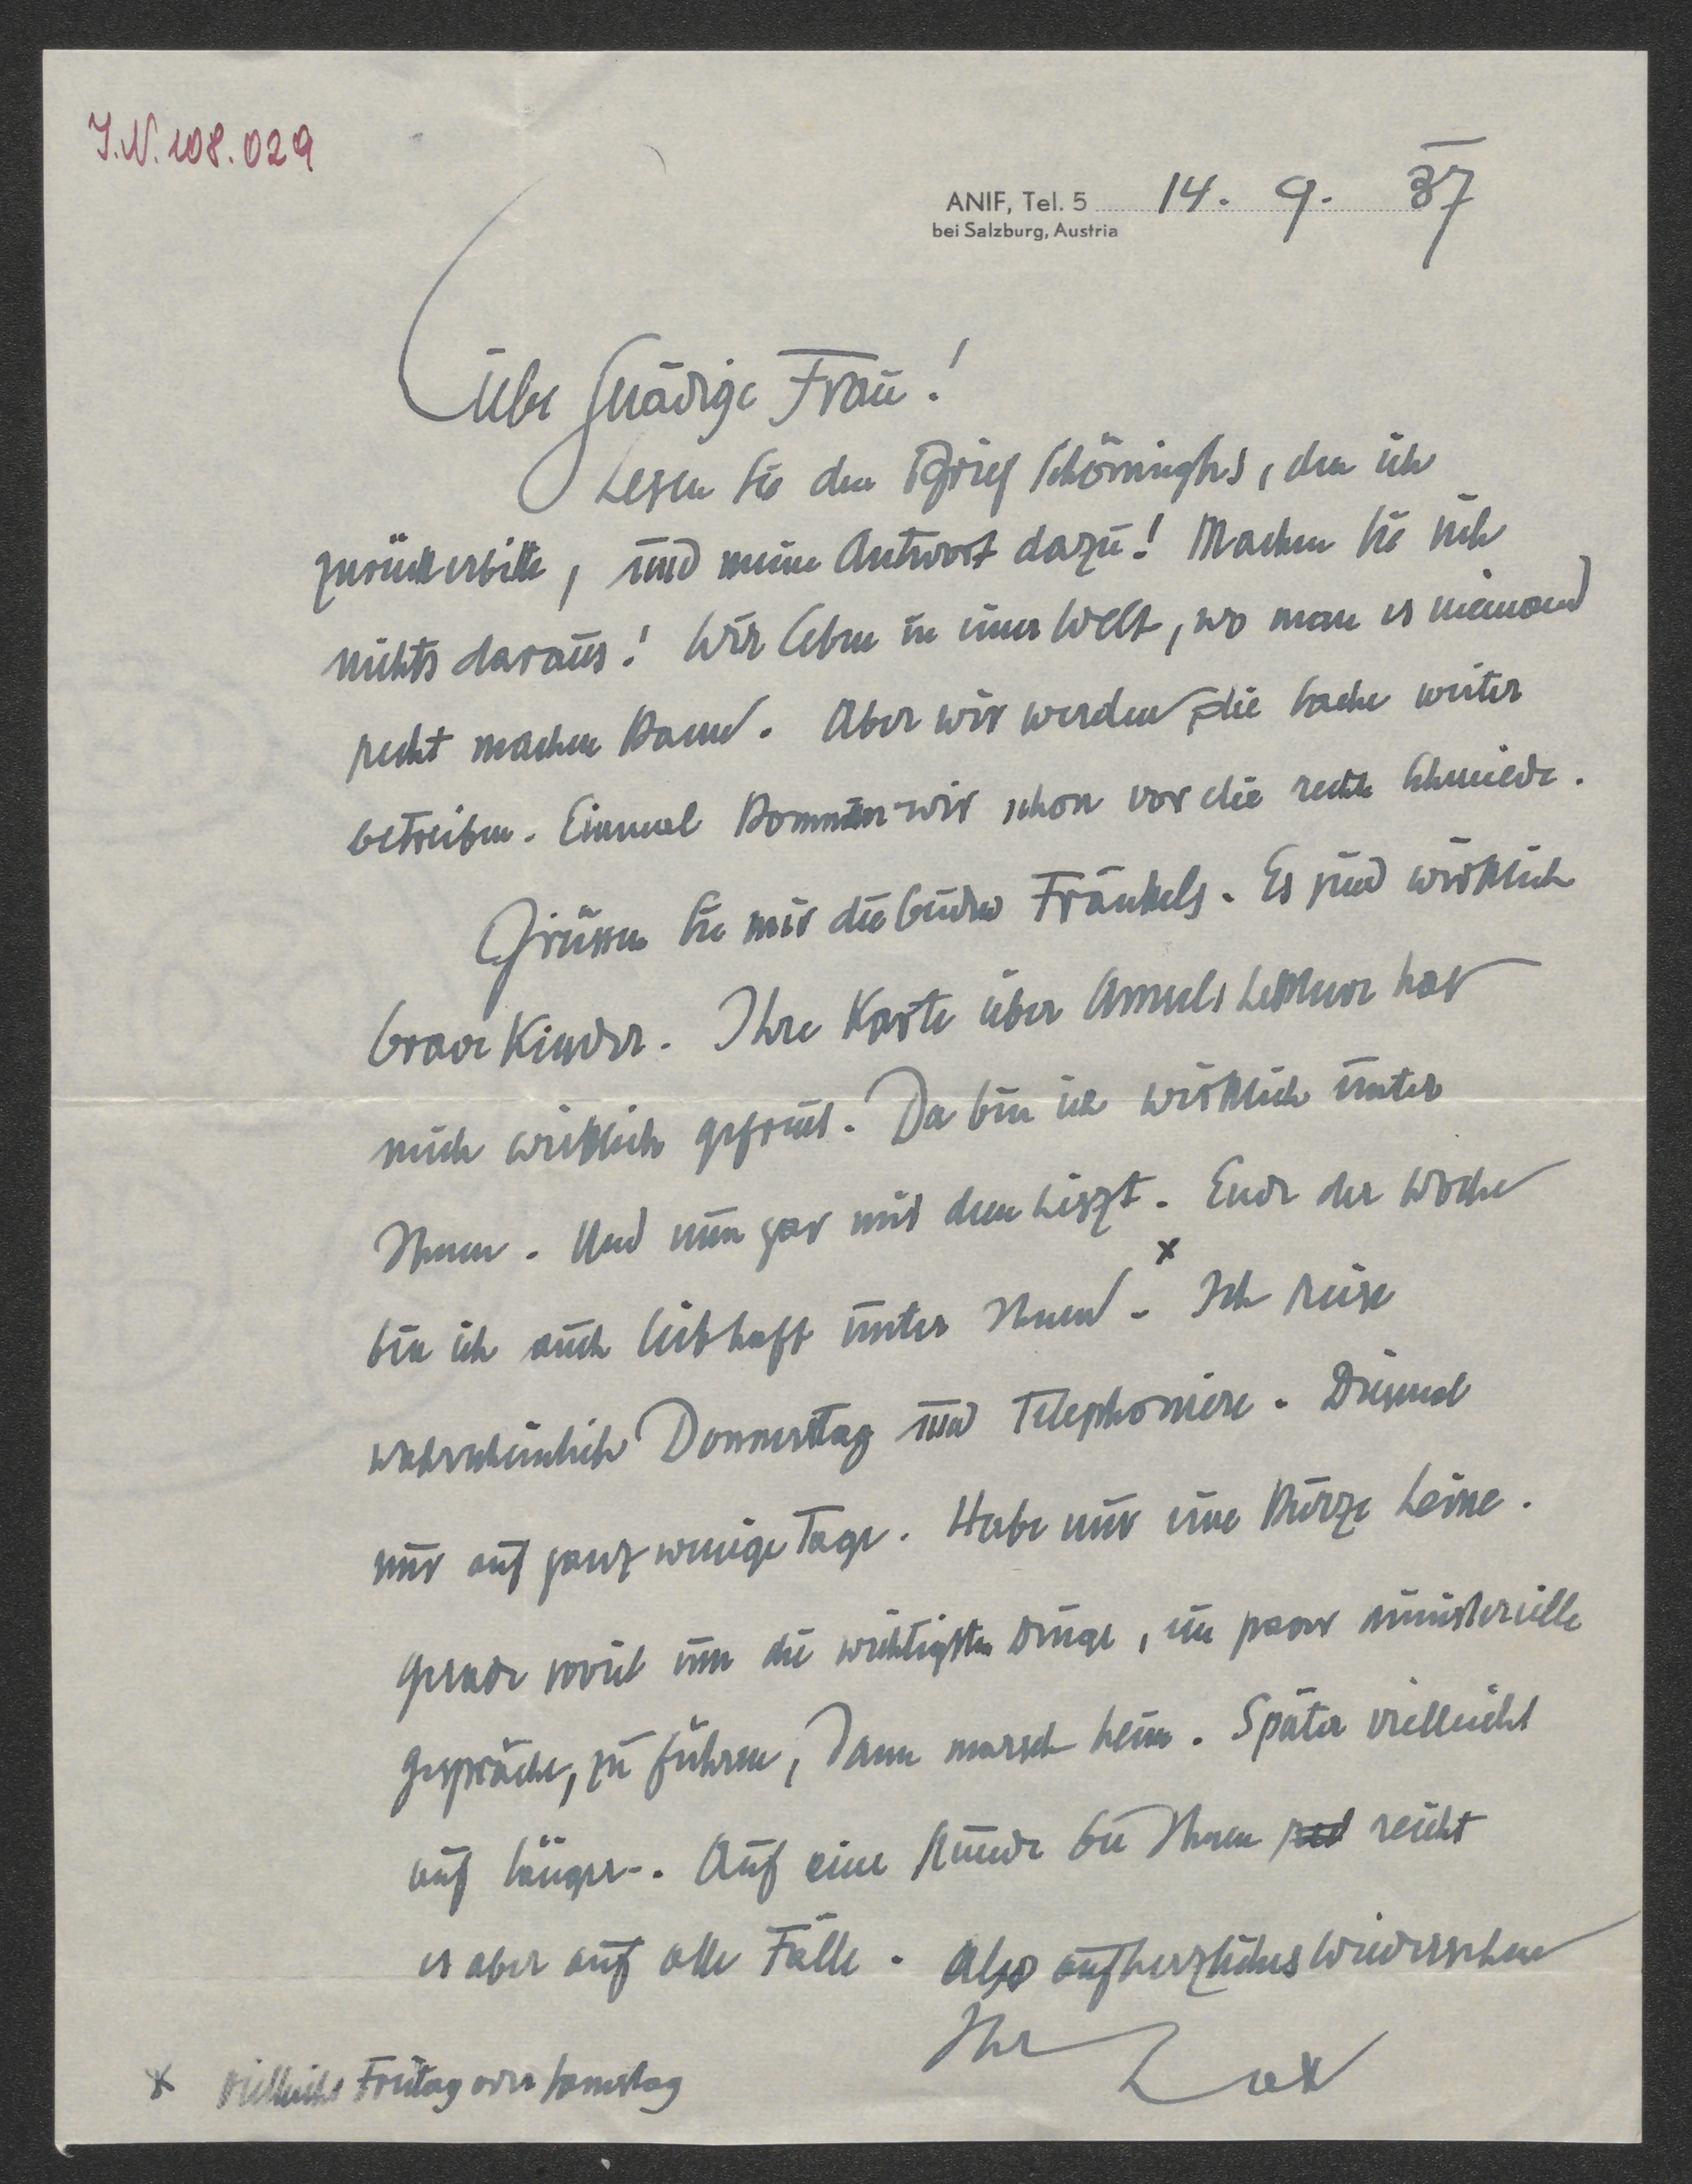 I.N. 108.029
ANIF, Tel. 5 14. 9. 37
bei Salzburg, Austria
Liebe gnädige Frau!
Lesen Sie den Brief Schöninghs, den ich
zurückerbitte, und meine Antwort dazu! Machen Sie sich
nichts daraus! Wir leben in einer Welt, wo man es niemand
recht machen kann. Aber wir werden die Sache weiter
betreiben. Einmal kommen wir schon vor die rechte Schmiede.
Grüssen Sie mir die beiden Fränkels. Es sind wirklich
brave Kinder. Ihre Karte über Lektüre hat
mich wirklich gefreut. Da bin ich wirklich unter
Ihnen. Und nun gar mit dem Liszt. Ende der Woche
bin ich auch leibhaft unter Ihnen. x Ich reise
wahrscheinlich Donnerstag und telephoniere. Diesmal
nur auf ganz wenige Tage. Habe nur eine kurze Leine.
Gerade soviel um die wichtigsten Dinge, ein paar ministerielle
Gespräche, zu führen, dann marsch heim. Später vielleicht
auf länger. Auf eine Stunde bei Ihnen reicht
es aber auf alle Fälle. Also auf herzliches Wiedersehen
Ihr
x vielleicht Freitag oder Samstag